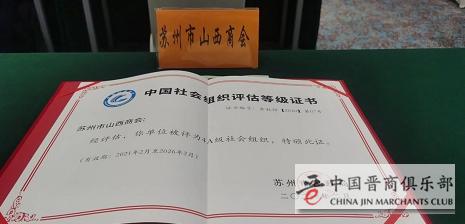 苏州市山西商会
中国社会组织评估等级证书
苏州市山西商会:
经评估,你单位被评为4A级社会组织,特颁此证。
(有效期:2021年2月至2026年2月)
苏州
二〇
中国晋商俱乐部
CHINA JIN MERCHANTS CLUB